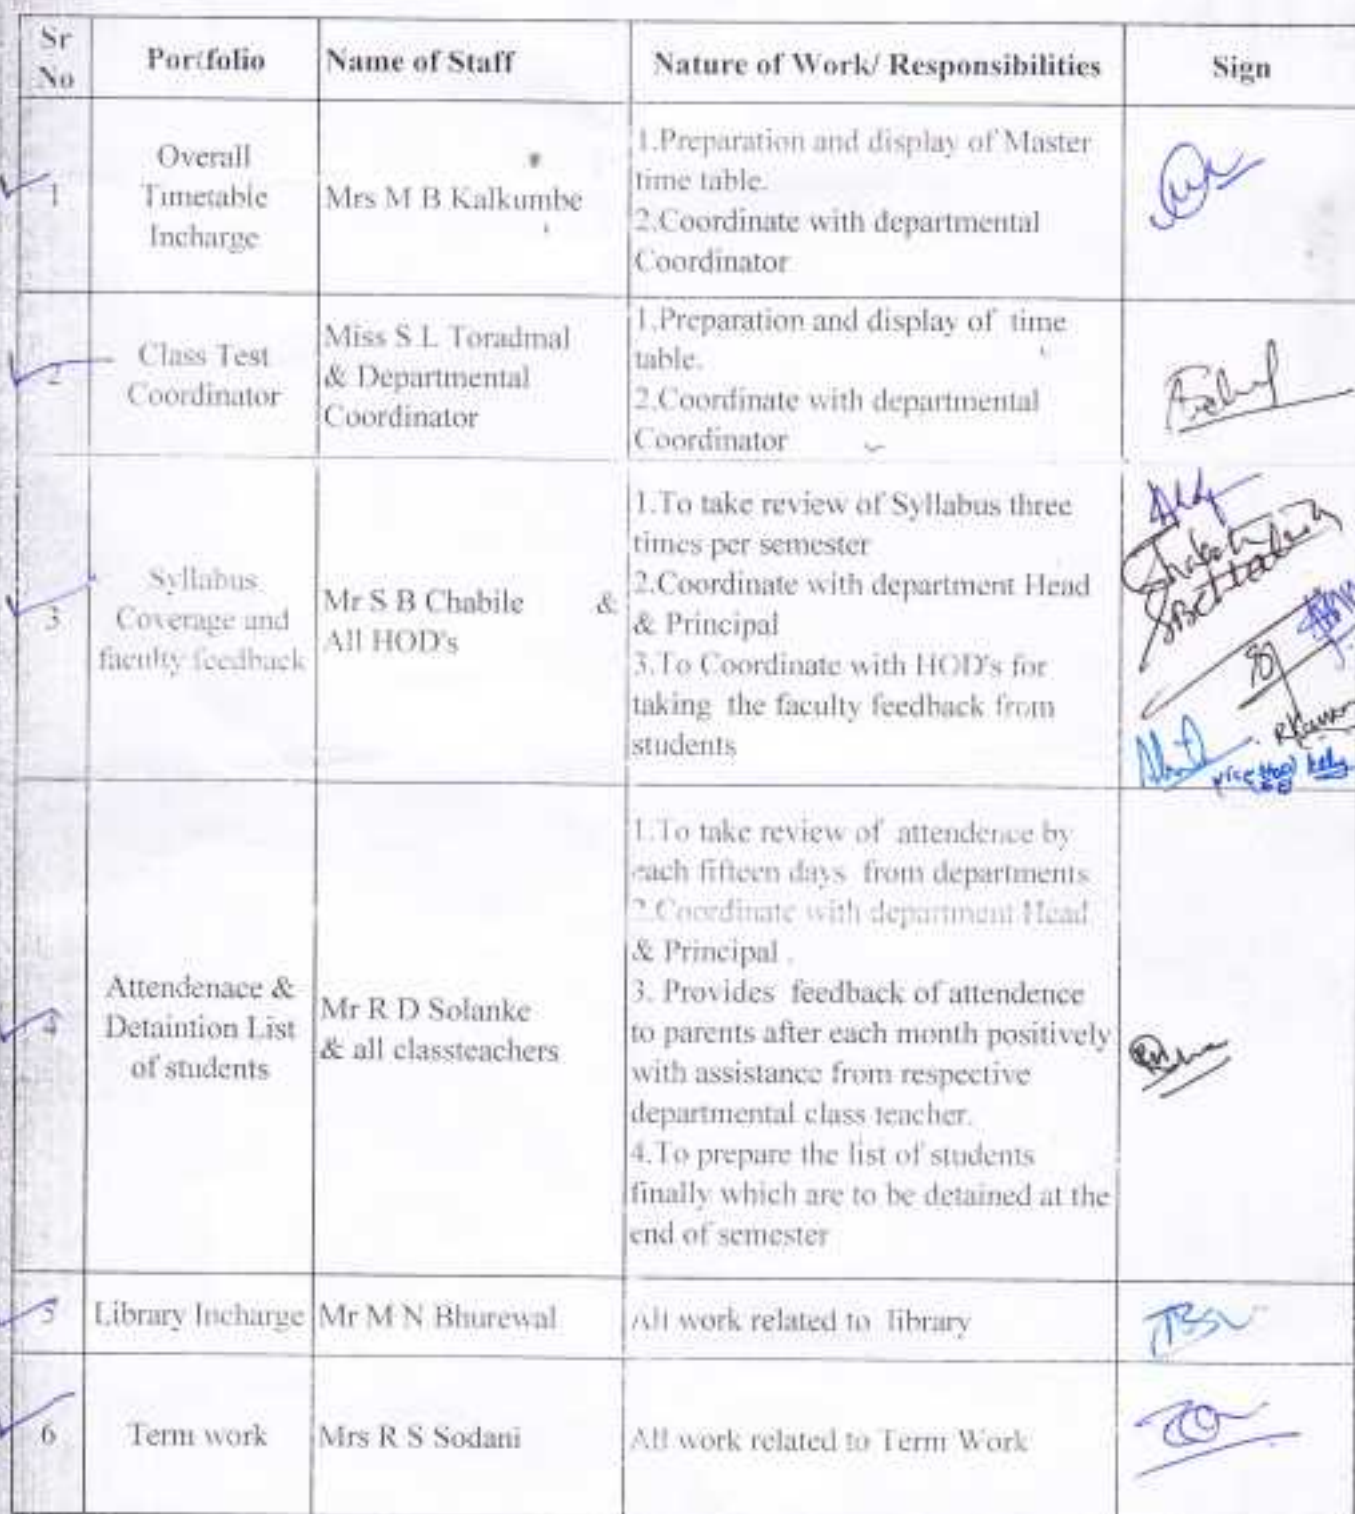 Sr No
Portfolio
Name of Staff
Nature of Work/ Responsibilities
Sign
1
Overall
Timetable
Incharge
Mrs M B Kalkumbe
1.Preparation and display of Master
time table.
2.Coordinate with departmental
Coordinator
2
Class Test
Coordinator
Miss S L Toradmal
& Departmental
Coordinator
1.Preparation and display of time
table.
2.Coordinate with departmental
Coordinator
3
Syllabus
Coverage and
faculty feedback
Mr S B Chabile &
All HOD's
1.To take review of Syllabus three
times per semester
2.Coordinate with department Head
& Principal
3.To Coordinate with HOD's for
taking the faculty feedback from
students
4
Attendenace &
Detaintion List
of students
Mr R D Solanke
& all classteachers
1.To take review of attendence by
each fifteen days from departments
2.Coordinate with department Head
& Principal .
3. Provides feedback of attendence
to parents after each month positively
with assistance from respective
departmental class teacher.
4.To prepare the list of students
finally which are to be detained at the
end of semester
5
Library Incharge
Mr M N Bhurewal
All work related to library
6
Term work
Mrs R S Sodani
All work related to Term Work